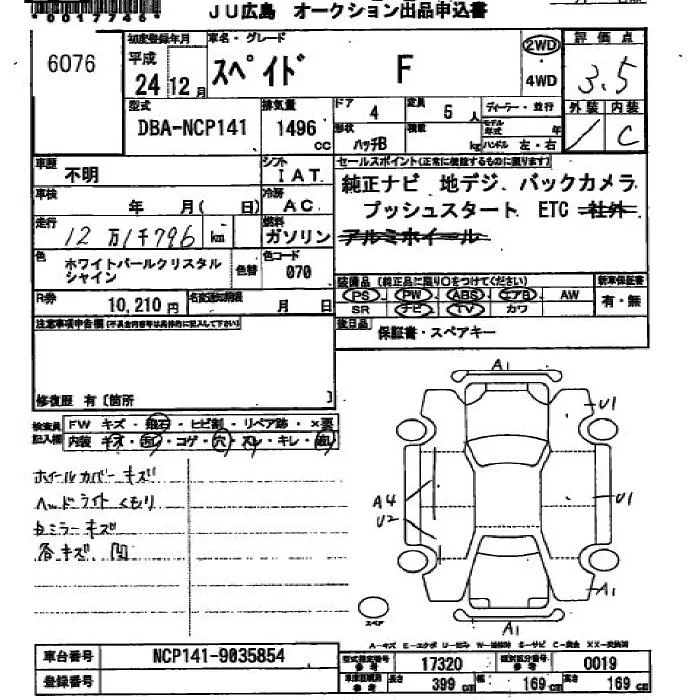 *00177464*
JU広島 オークション出品申込書
6076
初度登録年月
平成
24 12月
車名・グレード
スペイド F
2WD
4WD
評価点
3.5
型式
DBA-NCP141
排気量
1496 cc
ドア 4
定員 5人
ディーラー・並行
形状 ハッチB
積載 kg
モデル年式 年
ハンドル 左・右
外装 内装
C
車歴 不明
シフト IAT
車検 年 月( 日)
冷房 AC
走行 12万1千796 km
燃料 ガソリン
色 ホワイトパールクリスタル
シャイン
色替
色コード 070
R券 10,210円
名変通知期限 月 日
セールスポイント(正常に機能するものに限ります)
純正ナビ 地デジ、バックカメラ
プッシュスタート ETC 社外
アルミホイール
装備品 (純正品に限り○をつけてください)
PS PW ABS エアB AW
SR ナビ TV カワ
新車保証書
有・無
後日品 保証書・スペアキー
注意事項申告欄(不具合内容等は具体的に記入して下さい)
修復歴 有〔箇所 〕
検査員記入欄
FW キズ・飛石・ヒビ割・リペア跡・×要
内装 キズ・汚れ・コゲ・穴・スレ・キレ・
ホイールカバー キズ
ヘッドライト くもり
ミラー キズ
各キズ、凹
A1
U1
A4
U2
U1
A1
A1
スペア
A-キズ E-エクボ U-凹み W-補修跡 S-サビ C-腐食 XX-交換済
車台番号 NCP141-9035854
登録番号
型式指定番号 参考 17320
類別区分番号 参考 0019
車両寸法 参考 長さ 399cm 幅 169cm 高さ 169cm